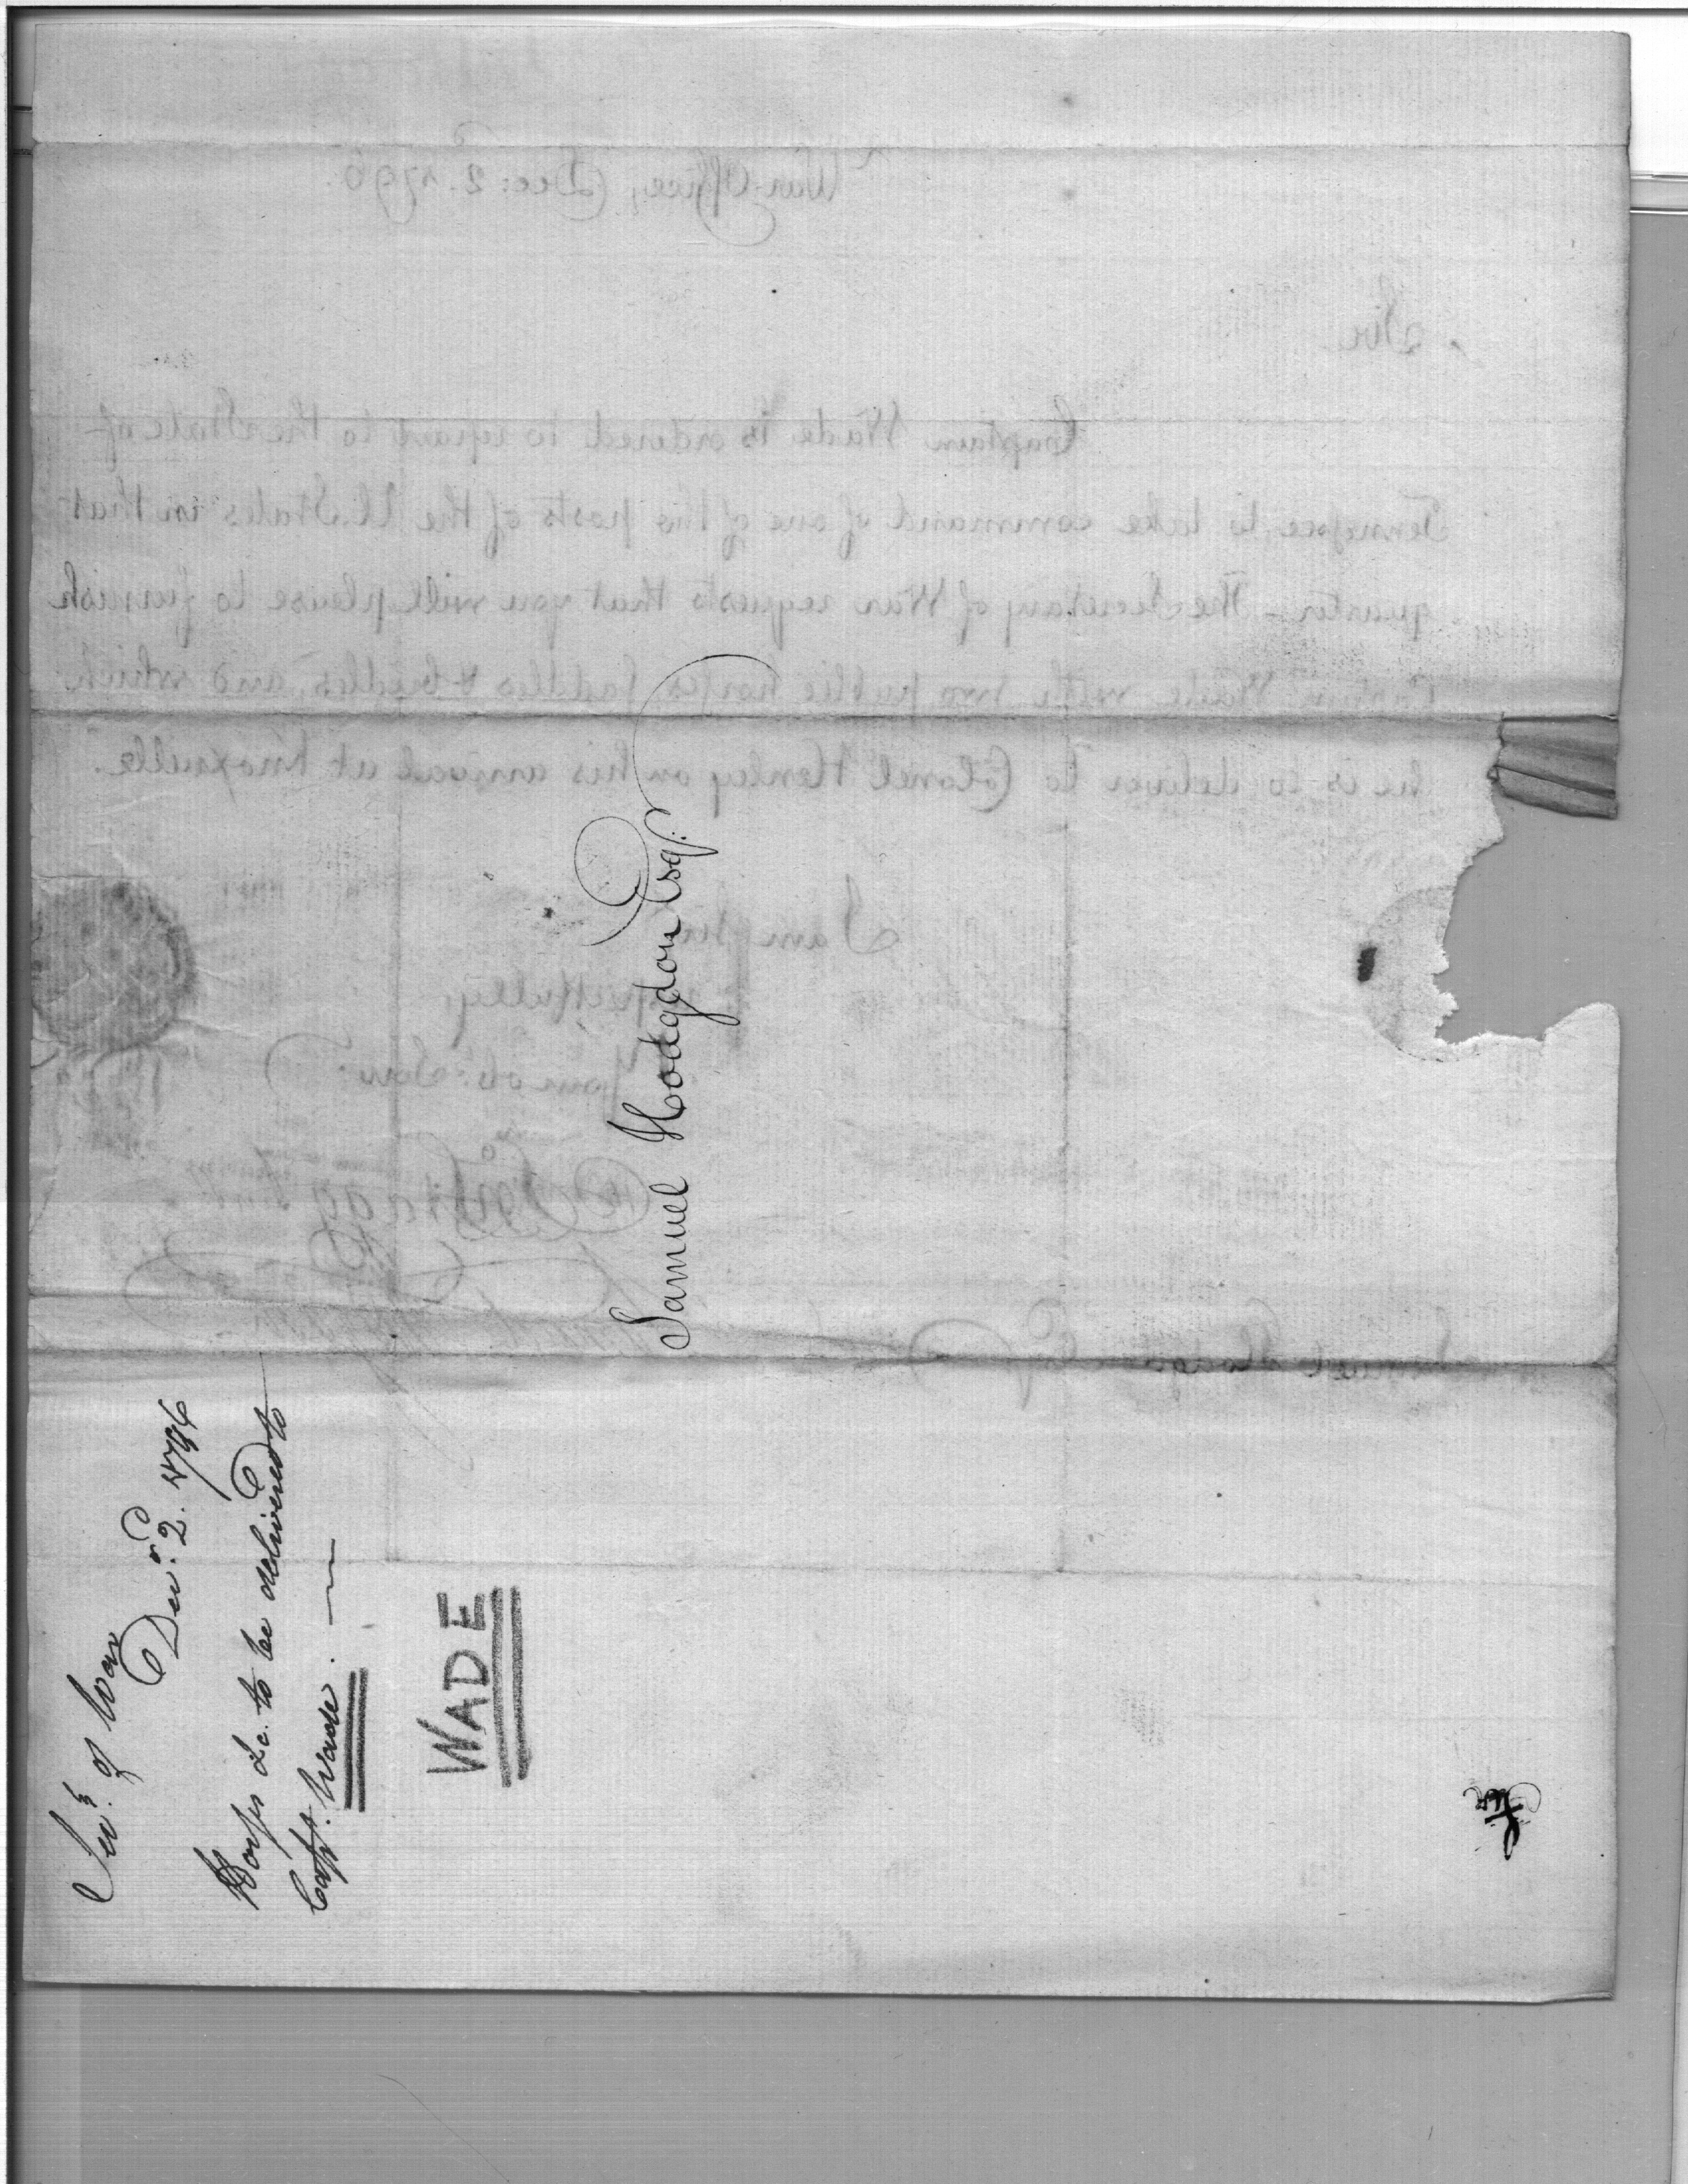 Samuel Hodgdon Esqr.
Secy. of War
Decr. 2. 1796
Horses &c. to be delivered to
Capt. Wade.
WADE
War Office, Dec: 2. 1796.
Sir
Captain Wade is ordered to repair to the State of
Tennessee to take command of one of the posts of the U. States in that
quarter – The Secretary of War requests that you will please to furnish
Captain Wade with two public horses saddles & bridles, and which
he is to deliver to Colonel Henley on his arrival at Knoxville.
I am Sir
respectfully
Your ob. Ser.
Samuel Hodgdon Esqr.